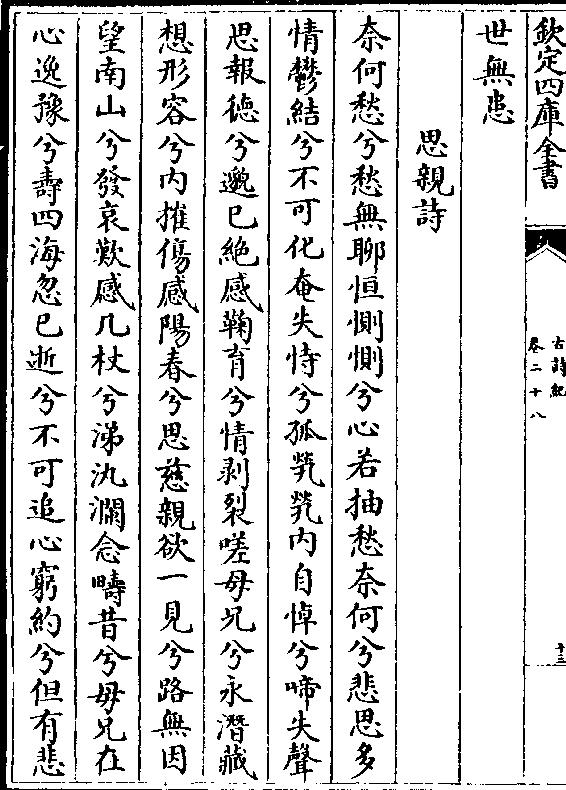 欽定四庫全書
古詩紀
卷二十八
十三
世無患
思親詩
奈何愁兮愁無聊恒惻惻兮心若抽愁奈何兮悲思多
情鬱結兮不可化奄失恃兮孤煢煢内自悼兮啼失聲
思報德兮邈已絶感鞠育兮情剥裂嗟母兄兮永潛藏
想形容兮内摧傷感陽春兮思慈親欲一見兮路無因
望南山兮發哀歎感几杖兮涕汍瀾念疇昔兮母兄在
心逸豫兮壽四海忽已逝兮不可追心窮約兮但有悲